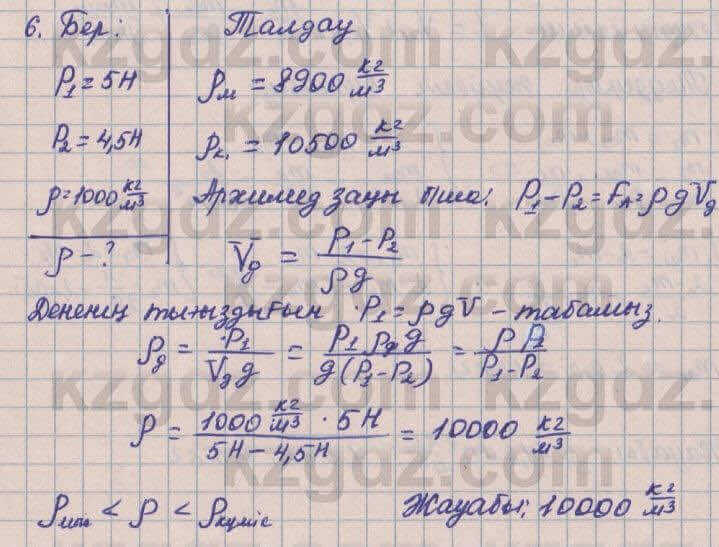 6. Бер: Талдау
P₁ = 5Н ρм = 8900 кг/м³
P₂ = 4,5Н ρк. = 10500 кг/м³
ρ = 1000 кг/м³ Архимед заңы б-ша: P₁ - P₂ = Fₐ = ρgVg
ρ - ? Vg = (P₁ - P₂)/(ρg)
Дененің тығыздығын P₁ = ρgV - табамыз.
ρg = P₁/(Vg g) = (P₁ ρg g)/(g(P₁ - P₂)) = (ρ P₂)/(P₁ - P₂)
ρ = (1000 кг/м³ · 5Н)/(5Н - 4,5Н) = 10000 кг/м³
ρмыс < ρ < ρкүміс Жауабы: 10000 кг/м³
kzgdz.com